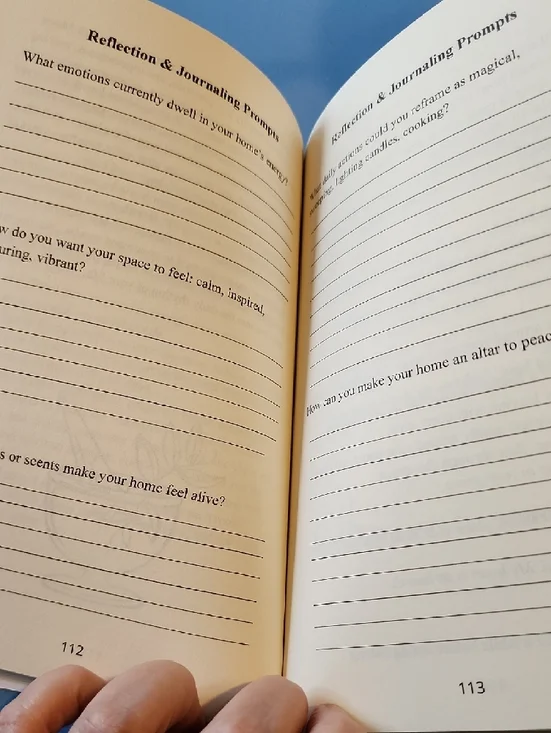 Reflection & Journaling Prompts
What emotions currently dwell in your home's energy?
do you want your space to feel: calm, inspired,
vibrant?
or scents make your home feel alive?
112
Reflection & Journaling Prompts
What daily actions could you reframe as magical,
lighting candles, cooking?
How can you make your home an altar to
113